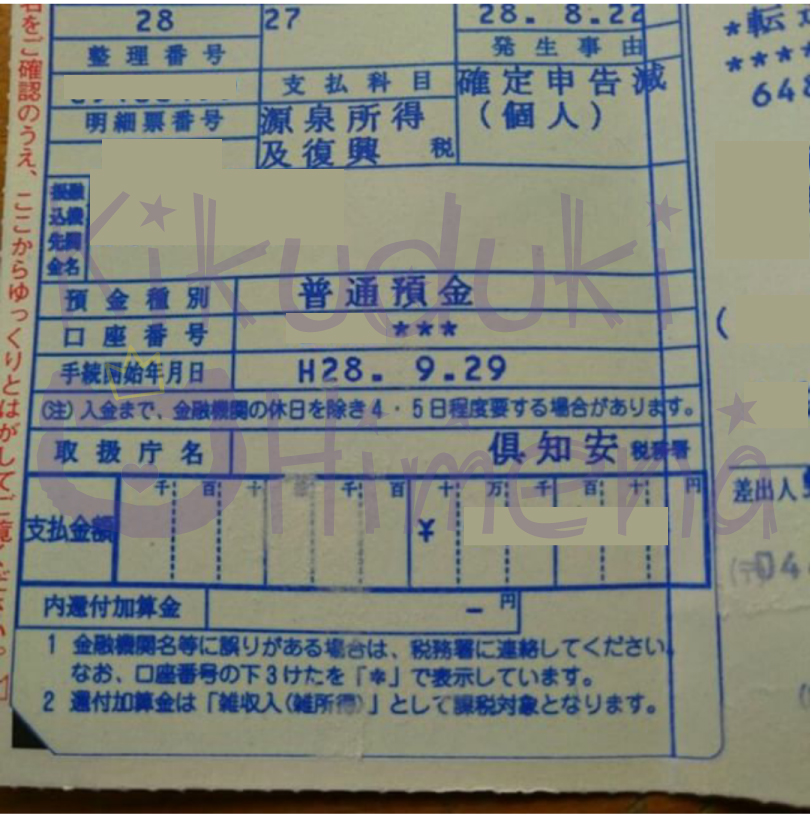 28
27
28. 8.22
整理番号
発生事由
支払科目
確定申告減
(個人)
明細票番号
源泉所得
及復興 税
振融
込機
先関
金名
預金種別
普通預金
口座番号
***
手続開始年月日
H28. 9.29
(注)入金まで、金融機関の休日を除き4・5日程度要する場合があります。
取扱庁名
倶知安 税務署
千 百 十 千 百 十 万 千 百 十 円
支払金額
¥
内還付加算金
− 円
1 金融機関名等に誤りがある場合は、税務署に連絡してください。
なお、口座番号の下3けたを「*」で表示しています。
2 還付加算金は「雑収入(雑所得)」として課税対象となります。
名をご確認のうえ、ここからゆっくりとはがしてご覧ください。
*転
****
648
(
差出人
(〒044
Kikuduki
Himena